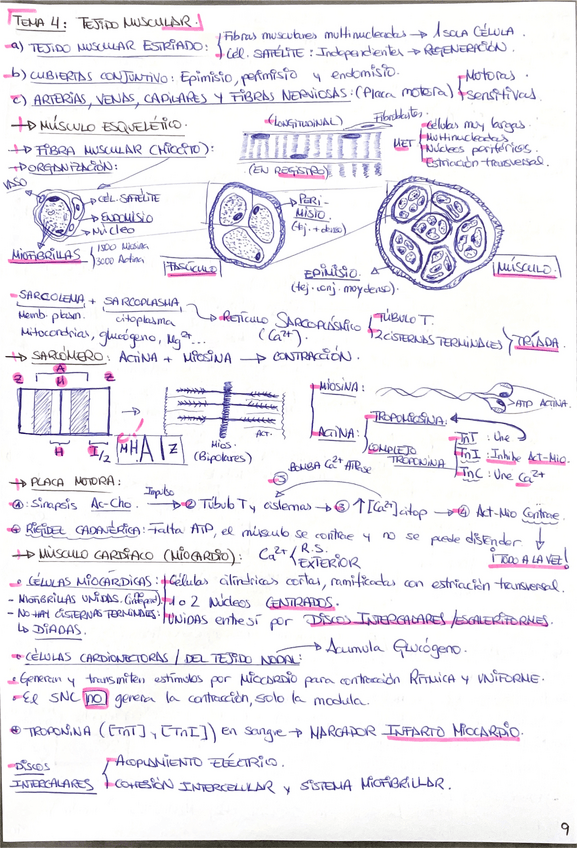 TEMA 4: TEJIDO MUSCULAR.
a) TEJIDO MUSCULAR ESTRIADO: Fibras musculares multinucleadas → 1 SOLA CÉLULA.
Cél. SATÉLITE: Independientes → REGENERACIÓN.
b) CUBIERTAS CONJUNTIVO: Epimisio, perimisio y endomisio.
c) ARTERIAS, VENAS, CAPILARES Y FIBRAS NERVIOSAS: (Placa motora) Motoras.
Sensitivas.
→ MÚSCULO ESQUELÉTICO.
(LONGITUDINAL)
Fibroblastos.
(EN REGISTRO)
MET
Células muy largas.
Multinucleadas
Núcleos periféricos.
Estriación transversal.
→ FIBRA MUSCULAR (MIOCITO):
→ ORGANIZACIÓN:
VASO
CÉL. SATÉLITE
ENDOMISIO
NÚCLEO
MIOFIBRILLAS
1500 Miosina
3000 Actina
FASCÍCULO
PERI-
MISIO.
(tej. + denso)
EPIMISIO.
(tej. conj. muy denso).
MÚSCULO.
- SARCOLEMA + SARCOPLASMA
Memb. plasm. citoplasma
Mitocondrias, glucógeno, Mg²⁺...
RETÍCULO SARCOPLÁSMICO
(Ca²⁺).
TÚBULO T.
2 CISTERNAS TERMINALES
TRÍADA.
→ SARCÓMERO: ACTINA + MIOSINA → CONTRACCIÓN.
Z A Z
M
H I/2
M H A I Z
MIOS.
(Bipolares)
ACT.
MIOSINA:
ATP ACTINA.
ACTINA:
TROPOMIOSINA.
COMPLEJO
TROPONINA
TnT : Une
TnI : Inhibe Act-Mio
TnC : Une Ca²⁺
→ PLACA MOTORA:
BOMBA Ca²⁺ ATPasa
⑤
①: Sinapsis Ac-Cho. Impulso → ② Túbulo T y cisternas → ③ ↑[Ca²⁺] citop → ④ Act-Mio Contrae.
RIGIDEZ CADAVÉRICA: Falta ATP, el músculo se contrae y no se puede distender
¡TODO A LA VEZ!
→ MÚSCULO CARDIACO (MIOCARDIO): Ca²⁺ R.S.
EXTERIOR
• CÉLULAS MIOCÁRDICAS: Células cilíndricas cortas, ramificadas con estriación transversal.
- MIOFIBRILLAS UNIDAS. (no indepen) 1 o 2 Núcleos CENTRADOS.
- NO HAY CISTERNAS TERMINALES: UNIDAS entre sí por DISCOS INTERCALARES / ESCALERIFORMES.
↳ DIADAS.
• CÉLULAS CARDIONECTORAS / DEL TEJIDO NODAL: → Acumula Glucógeno.
• Generan y transmiten estímulos por MIOCARDIO para contracción RÍTMICA Y UNIFORME.
• El SNC no genera la contracción, solo la modula.
TROPONINA ([TnT] y [TnI]) en sangre → MARCADOR INFARTO MIOCARDIO.
DISCOS
INTERCALARES
ACOPLAMIENTO ELÉCTRICO.
COHESIÓN INTERCELULAR Y SISTEMA MIOFIBRILLAR.
9